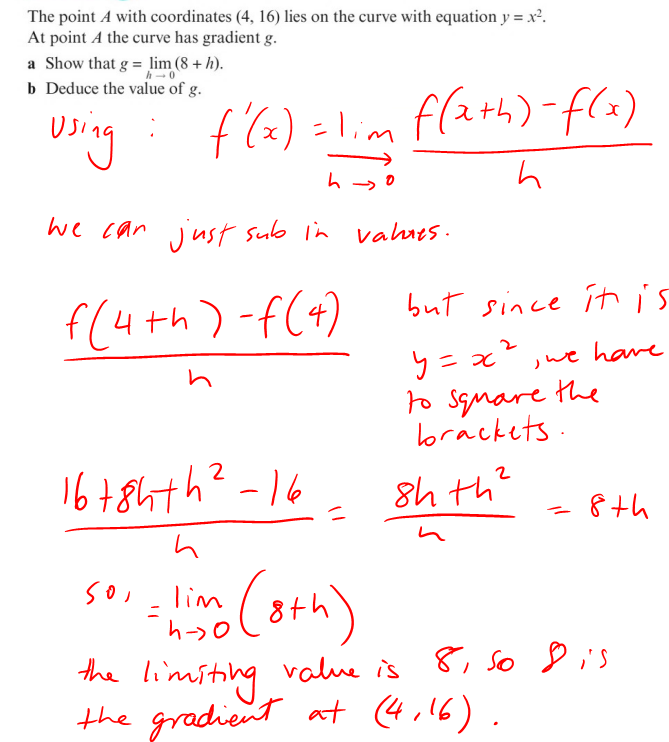 The point A with coordinates (4, 16) lies on the curve with equation y = x².
At point A the curve has gradient g.
a Show that g = lim (8 + h).
h → 0
b Deduce the value of g.
Using : f'(x) = lim h→0 f(x+h) - f(x) / h
we can just sub in values.
f(4+h) - f(4) / h
but since it is
y = x², we have
to square the
brackets.
16 + 8h + h² - 16 / h = 8h + h² / h = 8 + h
so, = lim h→0 (8+h)
the limiting value is 8, so 8 is
the gradient at (4, 16).